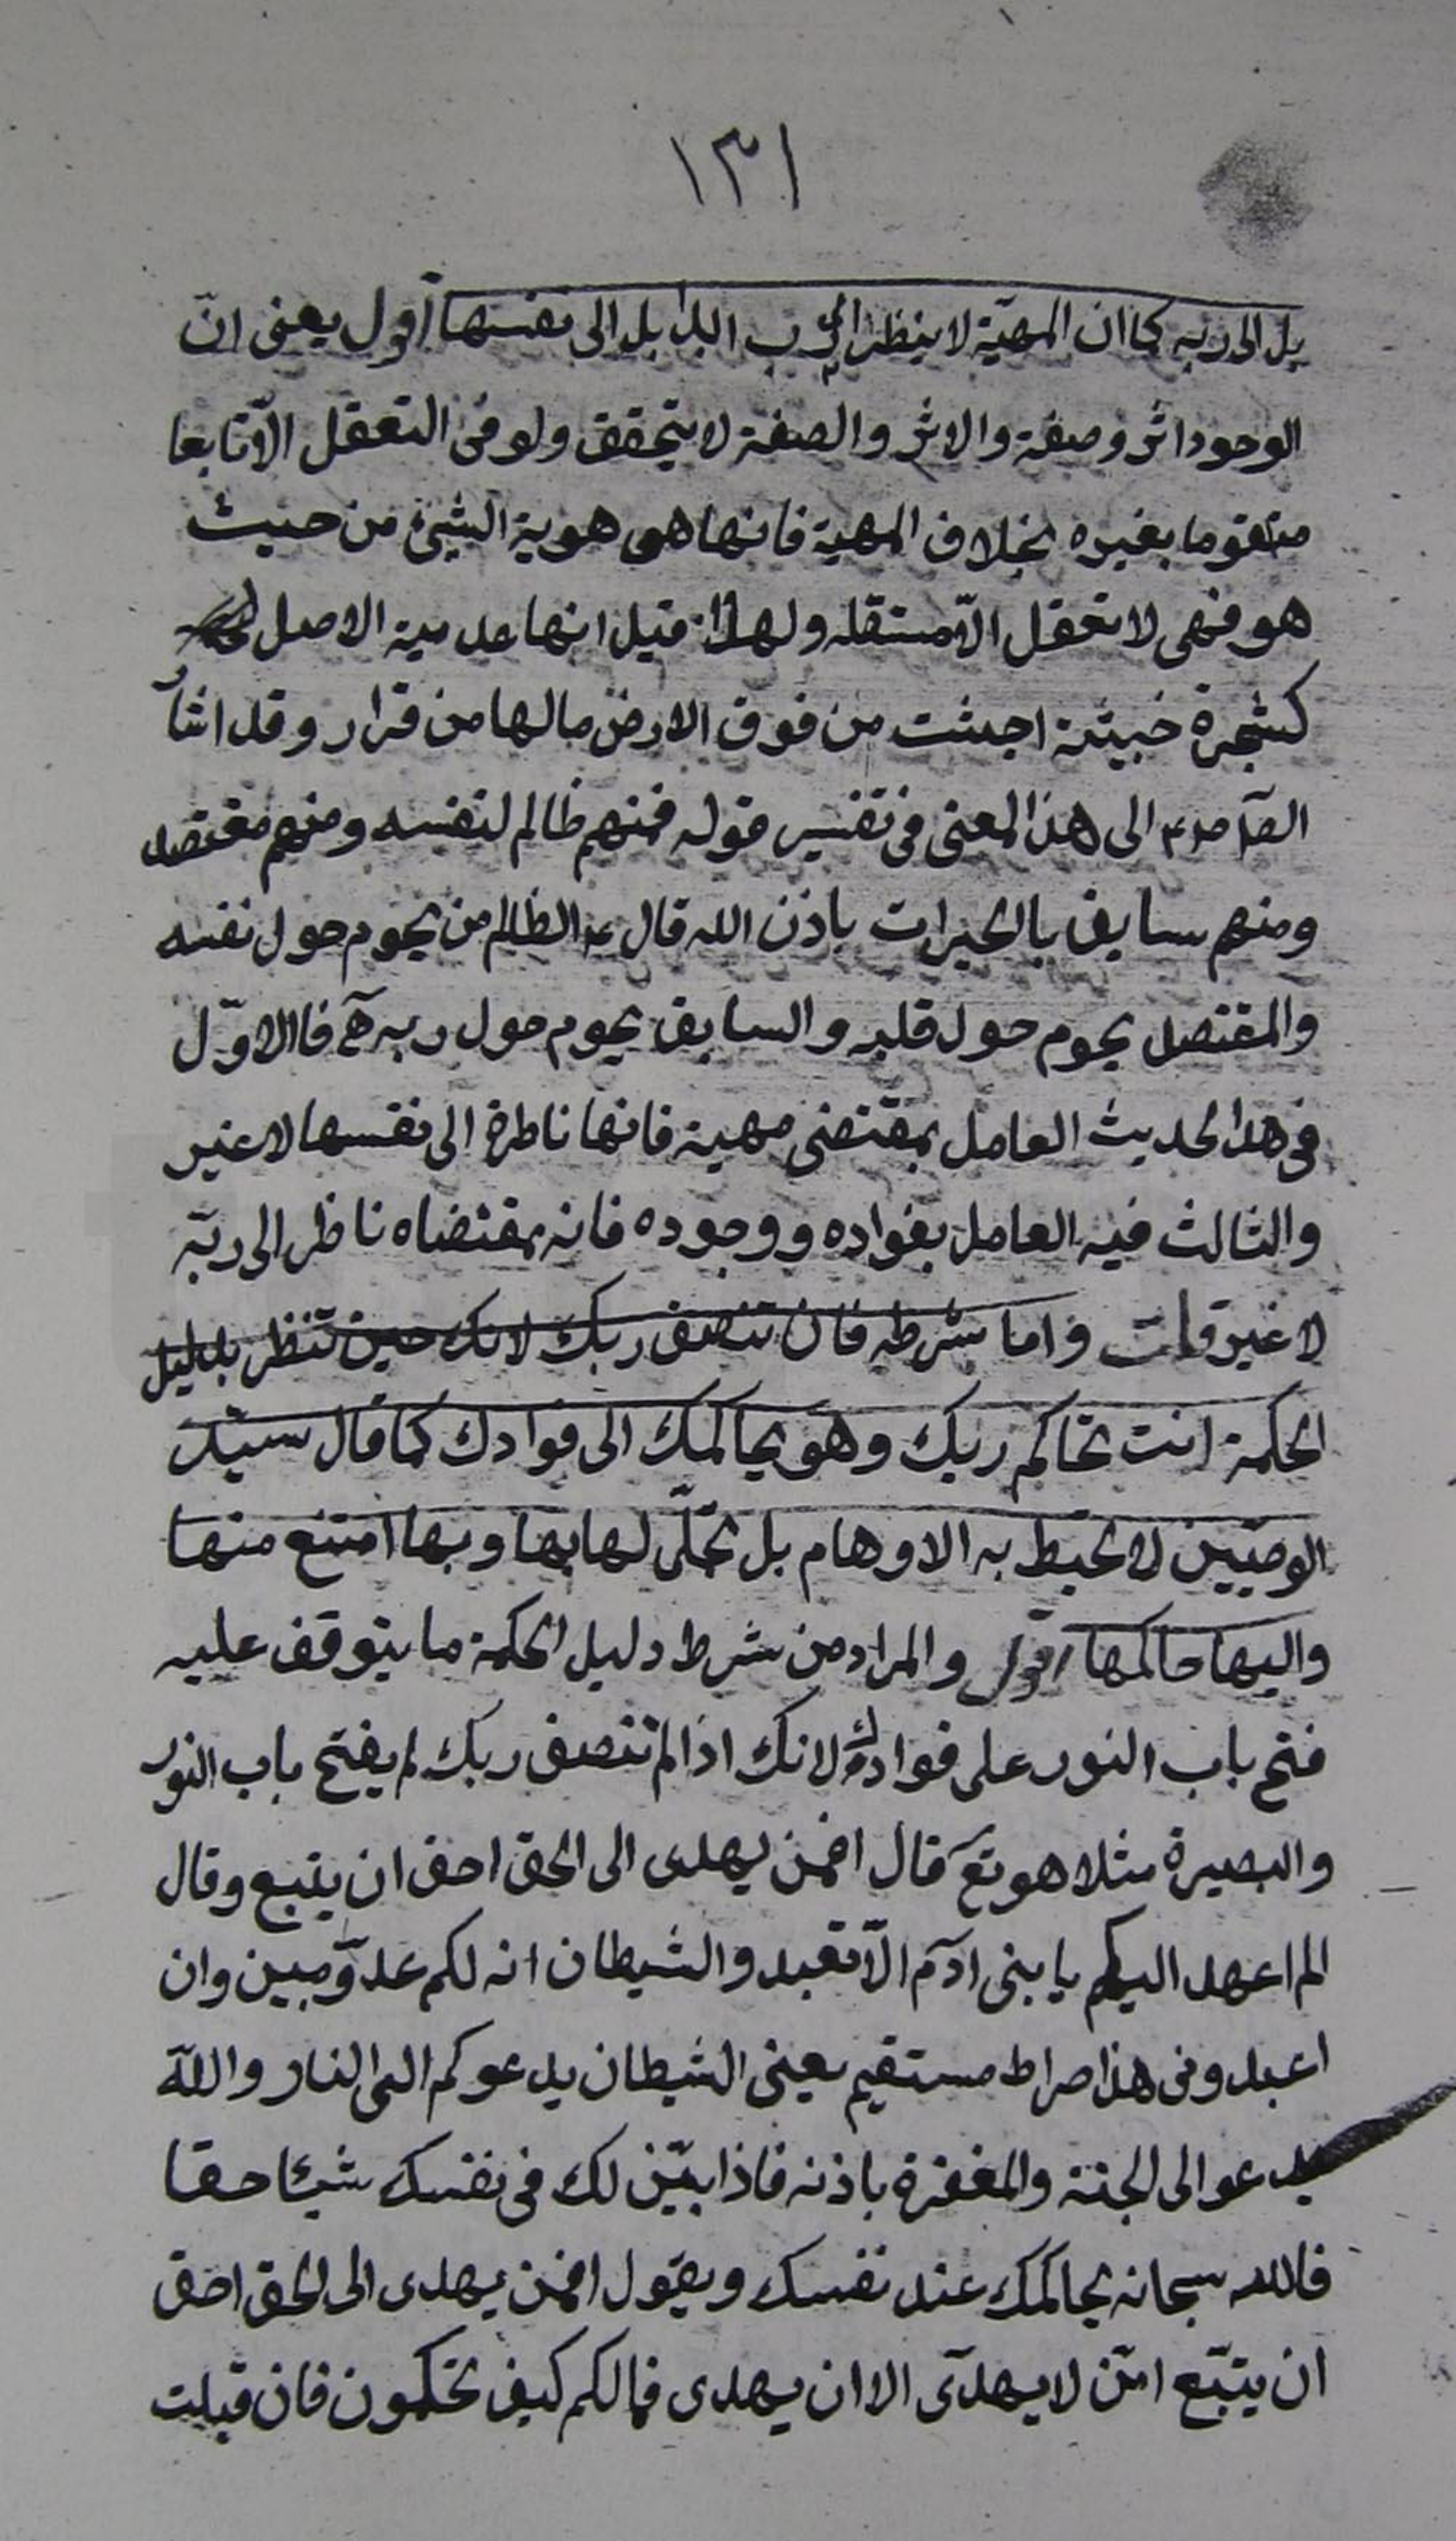 ١٣١
بل الى ربه كما ان المهيّة لا ينظر الى رب ابدا بل الى نفسها اقول يعنى انّ
الوجود اثر وصفة والاثر والصفة لا يتحقق ولو فى التعقل الّا تابعا
متقوما بغيره بخلاف المهية فانها هى هوية الشيئ من حيث
هو فهى لا تعقل الّا مستقله ولهذا قيل انها عدمية الاصل
كشجرة خبيثة اجتثت من فوق الارض مالها من قرار وقد اشار
الصادق ع الى هذا المعنى فى تفسير قوله فمنهم ظالم لنفسه ومنهم مقتصد
ومنهم سابق بالخيرات باذن الله قال ع الظالم من يحوم حول نفسه
والمقتصد يحوم حول قلبه والسابق يحوم حول ربه هآ فاالاوّل
فى هذا الحديث العامل بمقتضى مهية فانها ناظرة الى نفسها لا غير
والثالث فيه العامل بفواده ووجوده فانه بمقتضاه ناظر الى ربّه
لا غير قلت واما شرطه فان تنصف ربك لانك حين تنظر بدليل
الحكمة انت تحاكم ربك وهو يحاكمك الى فوادك كما قال سيّد
الوصيّين لا تحيط به الاوهام بل تجلّى لها بها وبها امتنع منها
واليها حاكمها اقول والمراد من شرط دليل الحكمة ما يتوقف عليه
فتح باب النور على فوادك لانك اذا لم تنصف ربك لم يفتح باب النور
والبصيرة مثلا هو تع قال افمن يهدى الى الحق احق ان يتبع وقال
الم اعهد اليكم يا بنى ادم الّا تعبدو الشيطان انه لكم عدوّ مبين وان
اعبدونى هذا صراط مستقيم يعنى الشيطان يدعوكم الى النار والله
يدعو الى الجنة والمغفرة باذنه فاذا بيّن لك فى نفسك شيئا حقا
فالله سبحانه يحاكمك عند نفسك ويقول افمن يهدى الى الحق احق
ان يتبّع امّن لا يهدّى الا ان يهدى فمالكم كيف تحكمون فان قبلت